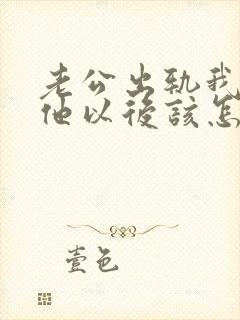 老公出軌我
他以後該怎
壹色